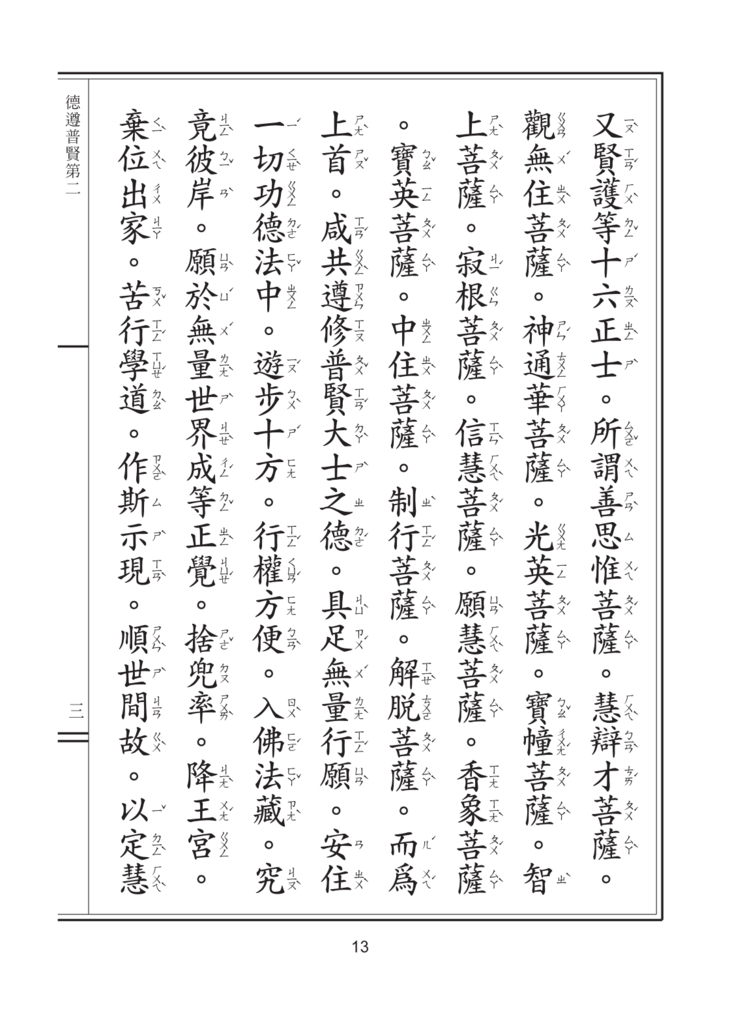 又賢護等十六正士。所謂善思惟菩薩。慧辯才菩薩。
觀無住菩薩。神通華菩薩。光英菩薩。寶幢菩薩。智
上菩薩。寂根菩薩。信慧菩薩。願慧菩薩。香象菩薩
。寶英菩薩。中住菩薩。制行菩薩。解脱菩薩。而爲
上首。咸共遵修普賢大士之德。具足無量行願。安住
一切功德法中。遊步十方。行權方便。入佛法藏。究
竟彼岸。願於無量世界成等正覺。捨兜率。降王宮。
棄位出家。苦行學道。作斯示現。順世間故。以定慧
德遵普賢第二
三
13